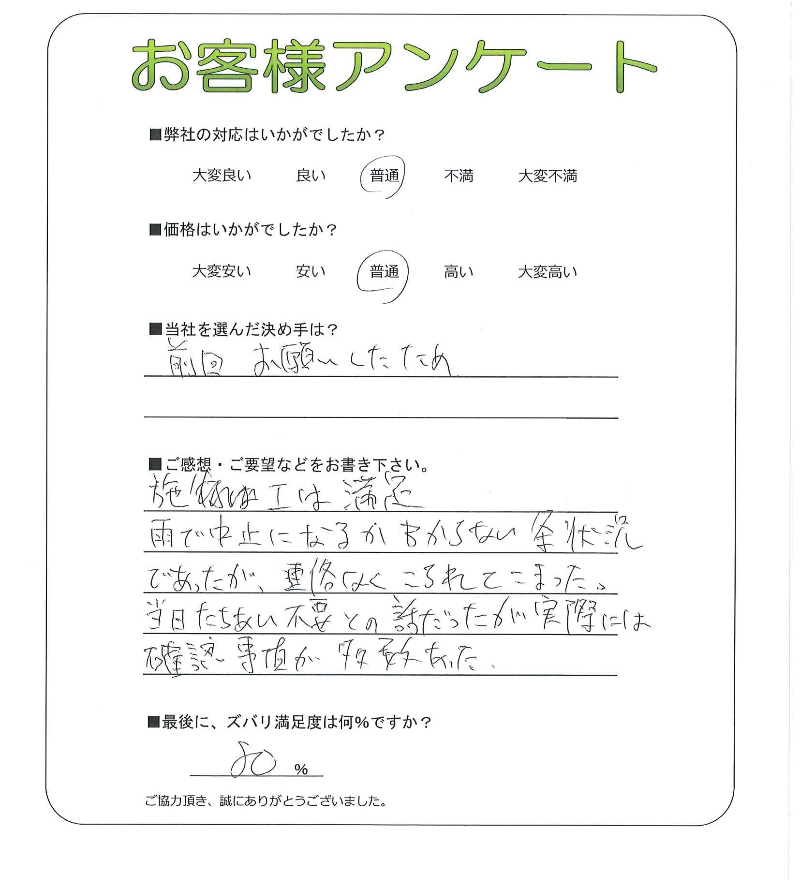 お客様アンケート
■弊社の対応はいかがでしたか？
大変良い 良い 普通 不満 大変不満
■価格はいかがでしたか？
大変安い 安い 普通 高い 大変高い
■当社を選んだ決め手は？
前回 お願いしたため
■ご感想・ご要望などをお書き下さい。
施工は 満足
雨で中止になるか わからない 状況
であったが、連絡なく こられてこまった。
当日たちあい不要との話だったが実際には
確認事項が 多数あった.
■最後に、ズバリ満足度は何%ですか？
80 %
ご協力頂き、誠にありがとうございました。